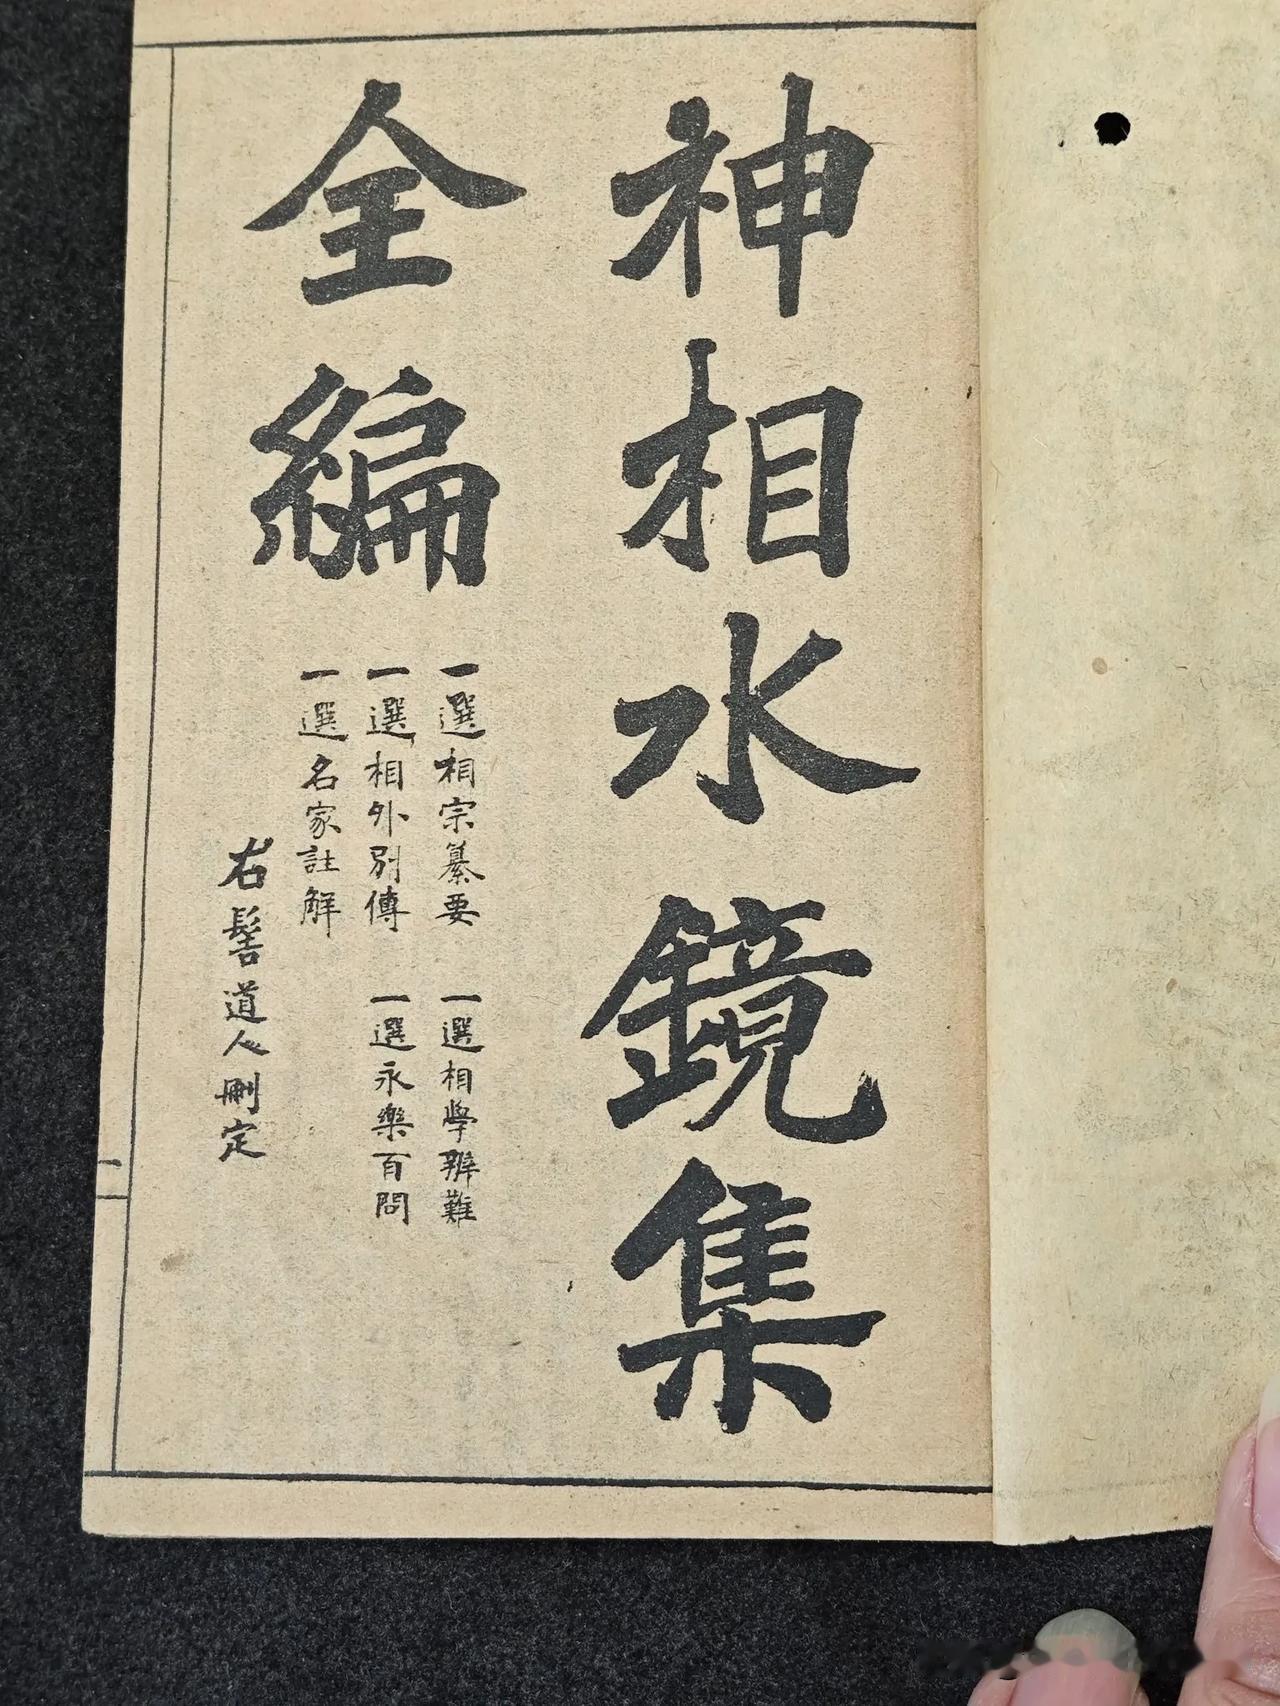 神相水鏡集
全編
一選相宗纂要
一選相學辨難
一選相外別傳
一選永樂百問
一選名家註解
右髻道人刪定
一